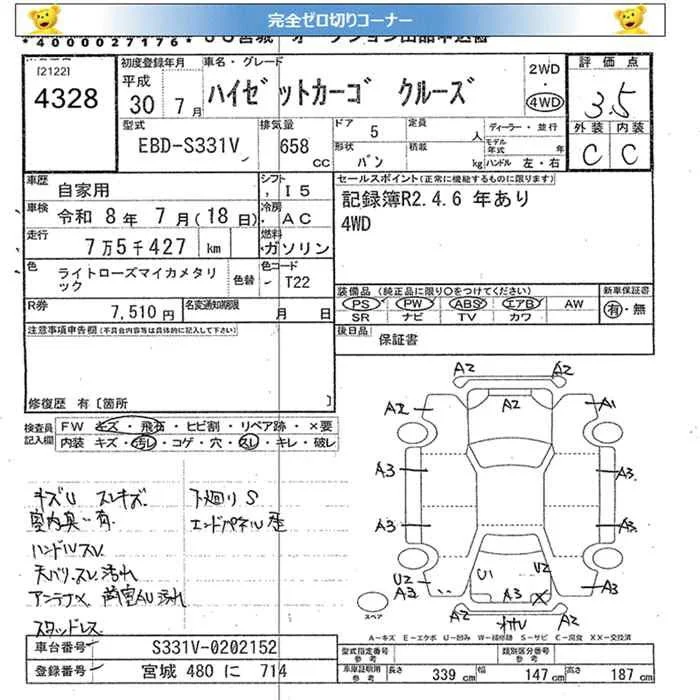 完全ゼロ切りコーナー
*4000027176*
[2122]
4328
初度登録年月
平成
30年 7月
車名・グレード
ハイゼットカーゴ クルーズ
2WD
・
4WD
評価点
3.5
外装 内装
C C
型式
EBD-S331V
排気量
658 cc
ドア 5
形状 バン
定員 人
積載 kg
ディーラー・並行
モデル年式 年
ハンドル 左・右
車歴
自家用
シフト I5
車検 令和 8年 7月(18日)
冷房 AC
走行 7万5千427 km
燃料 ガソリン
色 ライトローズマイカメタリック
色替
色コード T22
R券 7,510円
名変通知期限 月 日
セールスポイント(正常に機能するものに限ります)
記録簿R2.4.6 年あり
4WD
装備品(純正品に限り○をつけてください)
PS PW ABS エアB AW
SR ナビ TV カワ
新車保証書
有・無
後日品 保証書
注意事項申告欄(不具合内容等は具体的に記入して下さい)
修復歴 有〔箇所 〕
検査員記入欄
FW キズ・飛石・ヒビ割・リペア跡・×要
内装 キズ・汚レ・コゲ・穴・スレ・キレ・破レ
キズU スレキズ
室内臭い有
ハンドルスレ
天バリ、スレ汚れ
スタッドレス
下廻りS
エンドパネル歪
A2 A2
A2 A2 A1
A3 A3
A3 A3
U2 A3 U1 U2 A3
A3 X
A2 A2
スペア
A-キズ E-エクボ U-凹み W-補修跡 S-サビ C-腐食 XX-交換済
車台番号 S331V-0202152
登録番号 宮城 480 に 714
型式指定番号 参考
類別区分番号 参考
車庫証明用 参考
長さ 339 cm
幅 147 cm
高さ 187 cm